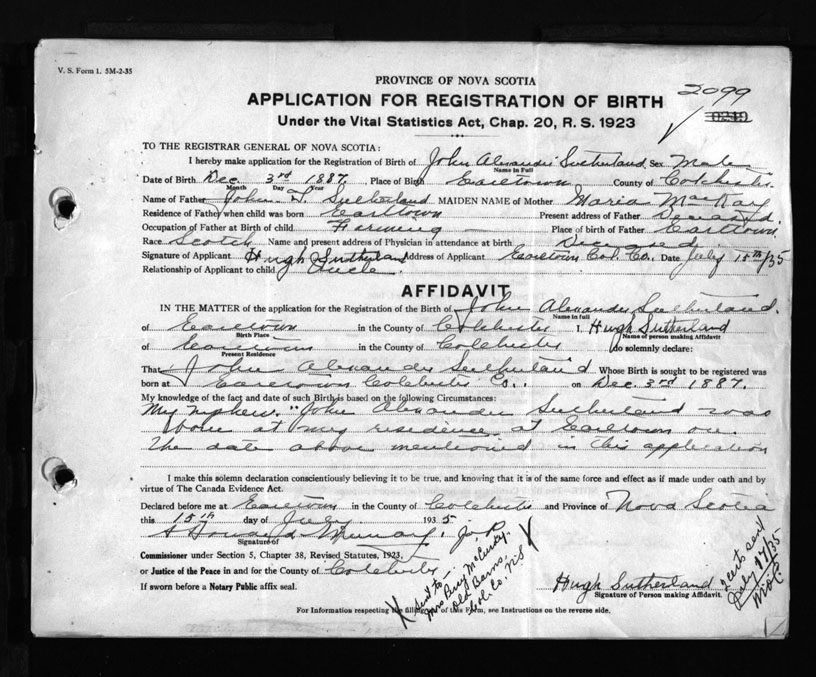 V. S. Form 1. 5M-2-35
PROVINCE OF NOVA SCOTIA
2099
APPLICATION FOR REGISTRATION OF BIRTH
Under the Vital Statistics Act, Chap. 20, R. S. 1923
TO THE REGISTRAR GENERAL OF NOVA SCOTIA:
I hereby make application for the Registration of Birth of John Alexander Sutherland Sex Male
Name in Full
Date of Birth Dec 3rd 1887 Place of Birth Earltown County of Colchester
Month Day Year
Name of Father John Sutherland MAIDEN NAME of Mother Maria MacKay
Residence of Father when child was born Earltown Present address of Father Deceased
Occupation of Father at Birth of child Farming Place of birth of Father Earltown
Race Scotch Name and present address of Physician in attendance at birth Deceased.
Signature of Applicant Hugh Sutherland Address of Applicant Earltown Col. Co. Date July 15th/35
Relationship of Applicant to child Uncle.
AFFIDAVIT
IN THE MATTER of the application for the Registration of the Birth of John Alexander Sutherland.
Name in full
of Earltown in the County of Colchester I, Hugh Sutherland
Birth Place Name of person making Affidavit
of Earltown in the County of Colchester do solemnly declare:
Present Residence
That John Alexander Sutherland Whose Birth is sought to be registered was
born at Earltown Colchester Co.. on Dec. 3rd 1887.
My knowledge of the fact and date of such Birth is based on the following Circumstances:
My nephew. "John Alexander Sutherland was
born at my residence at Earltown on.
the date above mentioned in this application
I make this solemn declaration conscientiously believing it to be true, and knowing that it is of the same force and effect as if made under oath and by
virtue of The Canada Evidence Act.
Declared before me at Earltown in the County of Colchester and Province of Nova Scotia
this 15th day of July 1935
Donald Murray. J. P.
Signature of
Commissioner under Section 5, Chapter 38, Revised Statutes, 1923,
or Justice of the Peace in and for the County of Colchester
If sworn before a Notary Public affix seal.
Sent to
Mrs Percy McCurdy.
Old Barns,
Col. Co. N.S
Hugh Sutherland
Signature of Person making Affidavit.
2 certs sent
July 17/35
For Information respecting the filling of this Form, see Instructions on the reverse side.